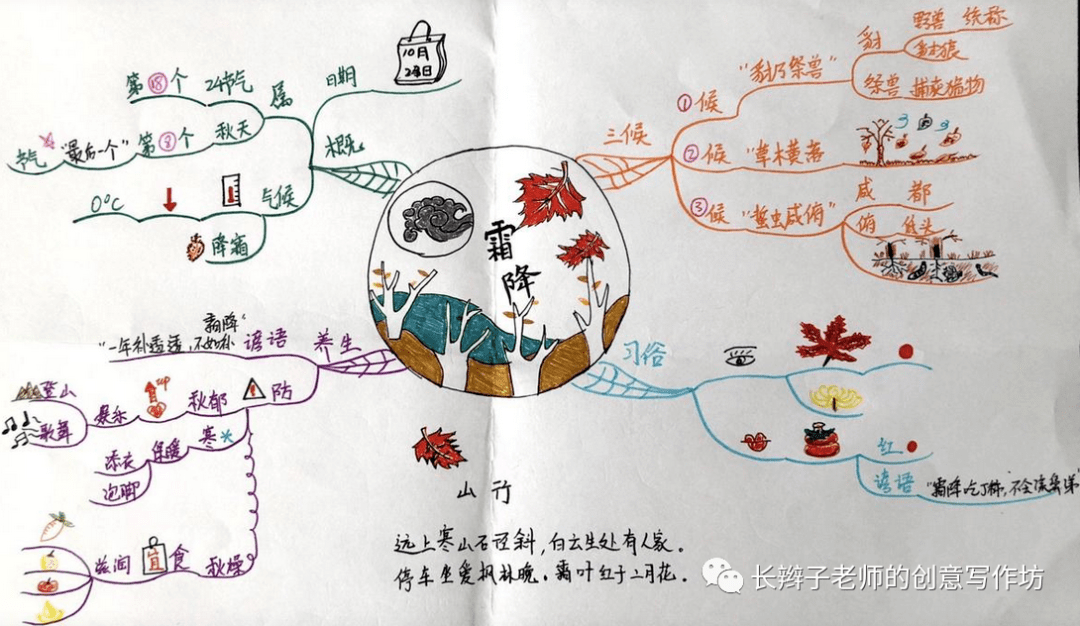 霜降
概况
日期
10月
23日
属
24节气
第⑱个
秋天
第③个
"最后一个"
节气
气候
0°C
降霜
三候
①候
"豺乃祭兽"
豺
野兽 统称
豺狼
祭兽 捕获猎物
②候 "草木黄落"
③候 "蜇虫咸俯"
咸 都
俯 低头
习俗
红
谚语
"霜降吃丁柿,不会流鼻涕
养生
谚语
"一年补透透,不如补
霜降"
防
秋郁
UP
娱乐
登山
歌舞
寒
保暖
添衣
泡脚
秋燥
宜食
滋润
山行
远上寒山石径斜,白云生处有人家。
停车坐爱枫林晚,霜叶红于二月花。
长辫子老师的创意写作坊